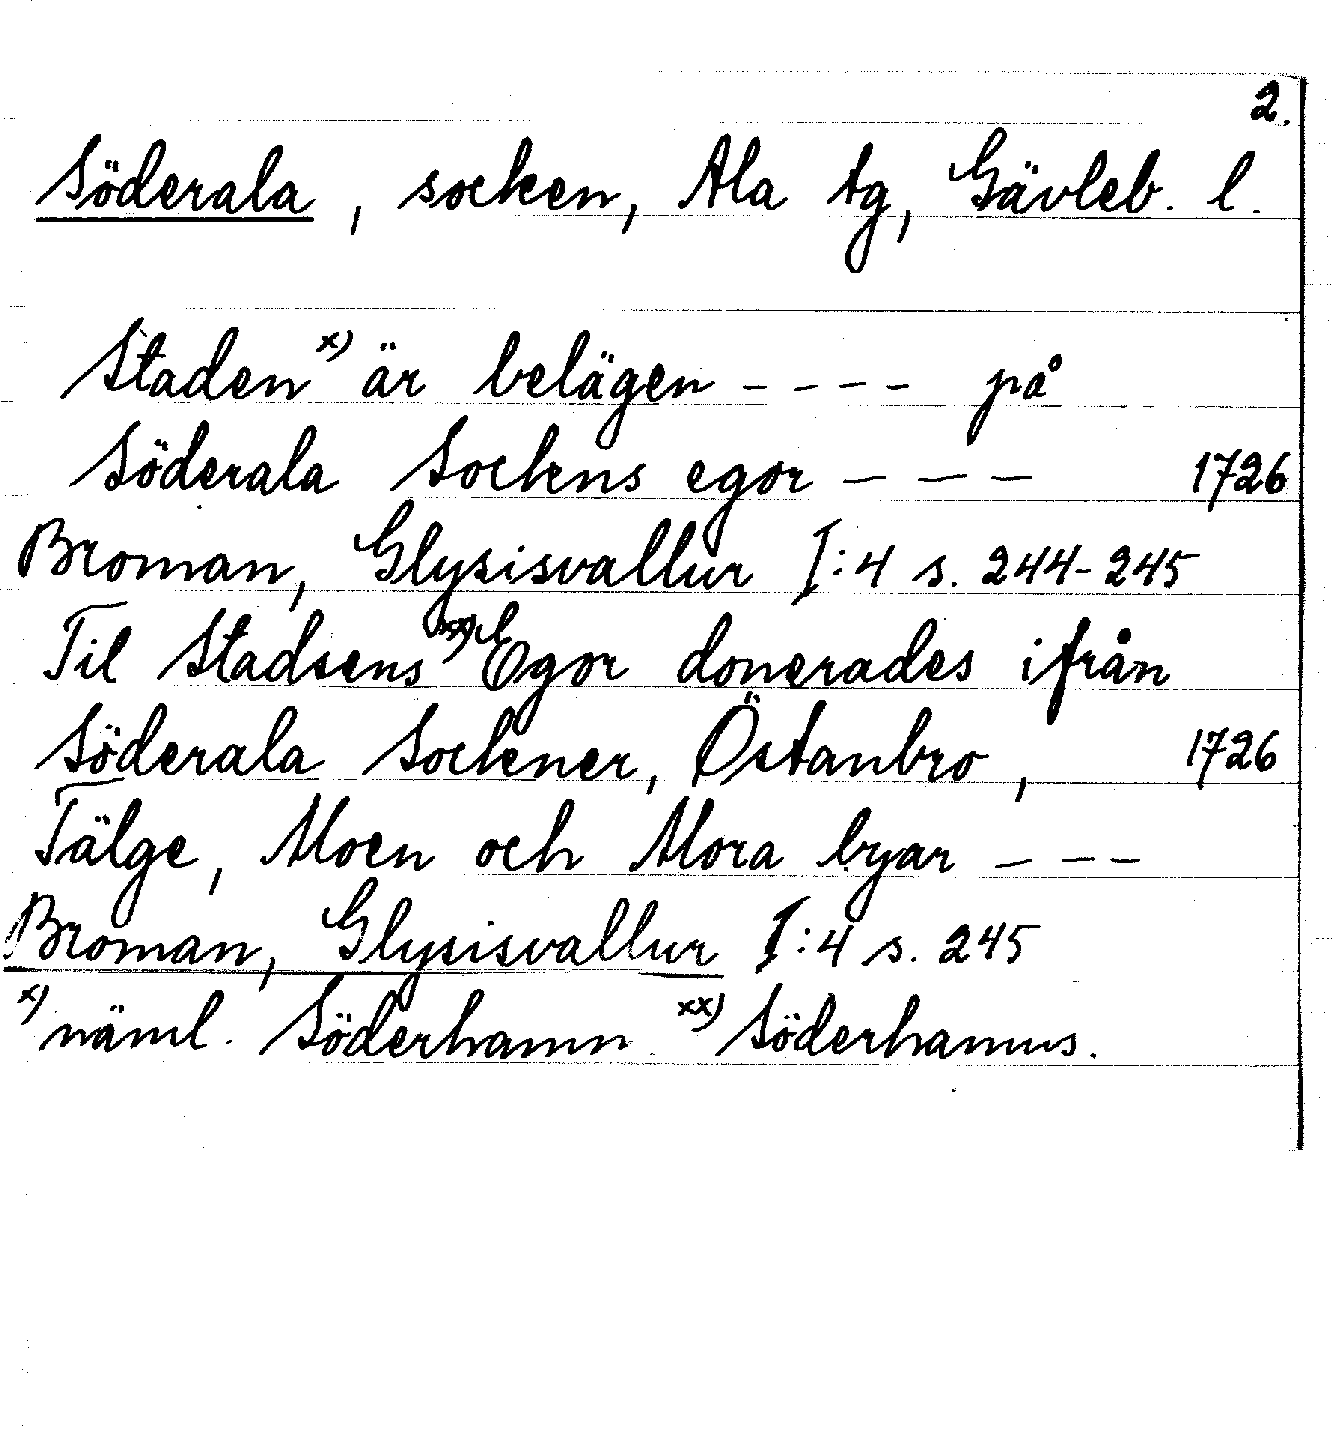 2.
Söderala, socken, Ala tg, Gävleb. l.
Staden x) är belägen - - - - på
Söderala Sockens egor - - - 1726
Broman, Glysisvallur I:4 s. 244-245
Til Stadsens xx) Egor donerades ifrån
Söderala Sockener, Östanbro, 1726
Tälge, Moen och Mora byar - - -
Broman, Glysisvallur I:4 s. 245
x) näml. Söderhamn xx) Söderhamns.